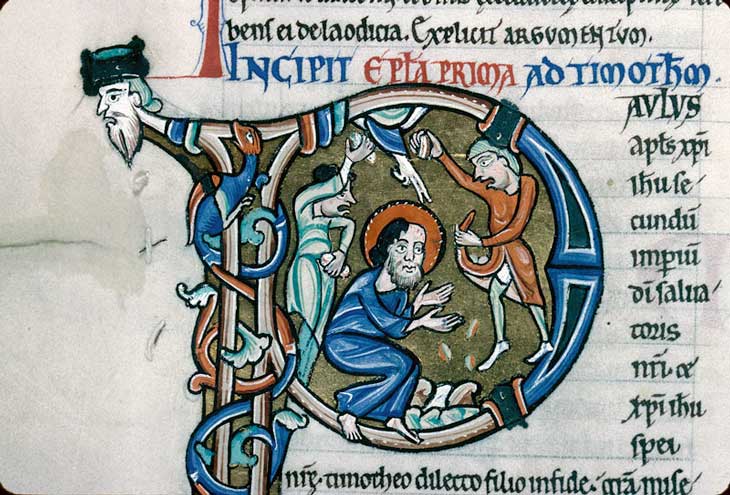 bens ei de laodicia. Explicit argumentum.
INCIPIT EPĪA PRIMA AD TIMOTHM̄.
PAULUS
apls xp̄i
ihu se
cundū
imperiū
dī salua
toris
nr̄i ⁊
xp̄i ihu
spei
nr̄ę. timotheo dilecto filio in fide. grā. mise